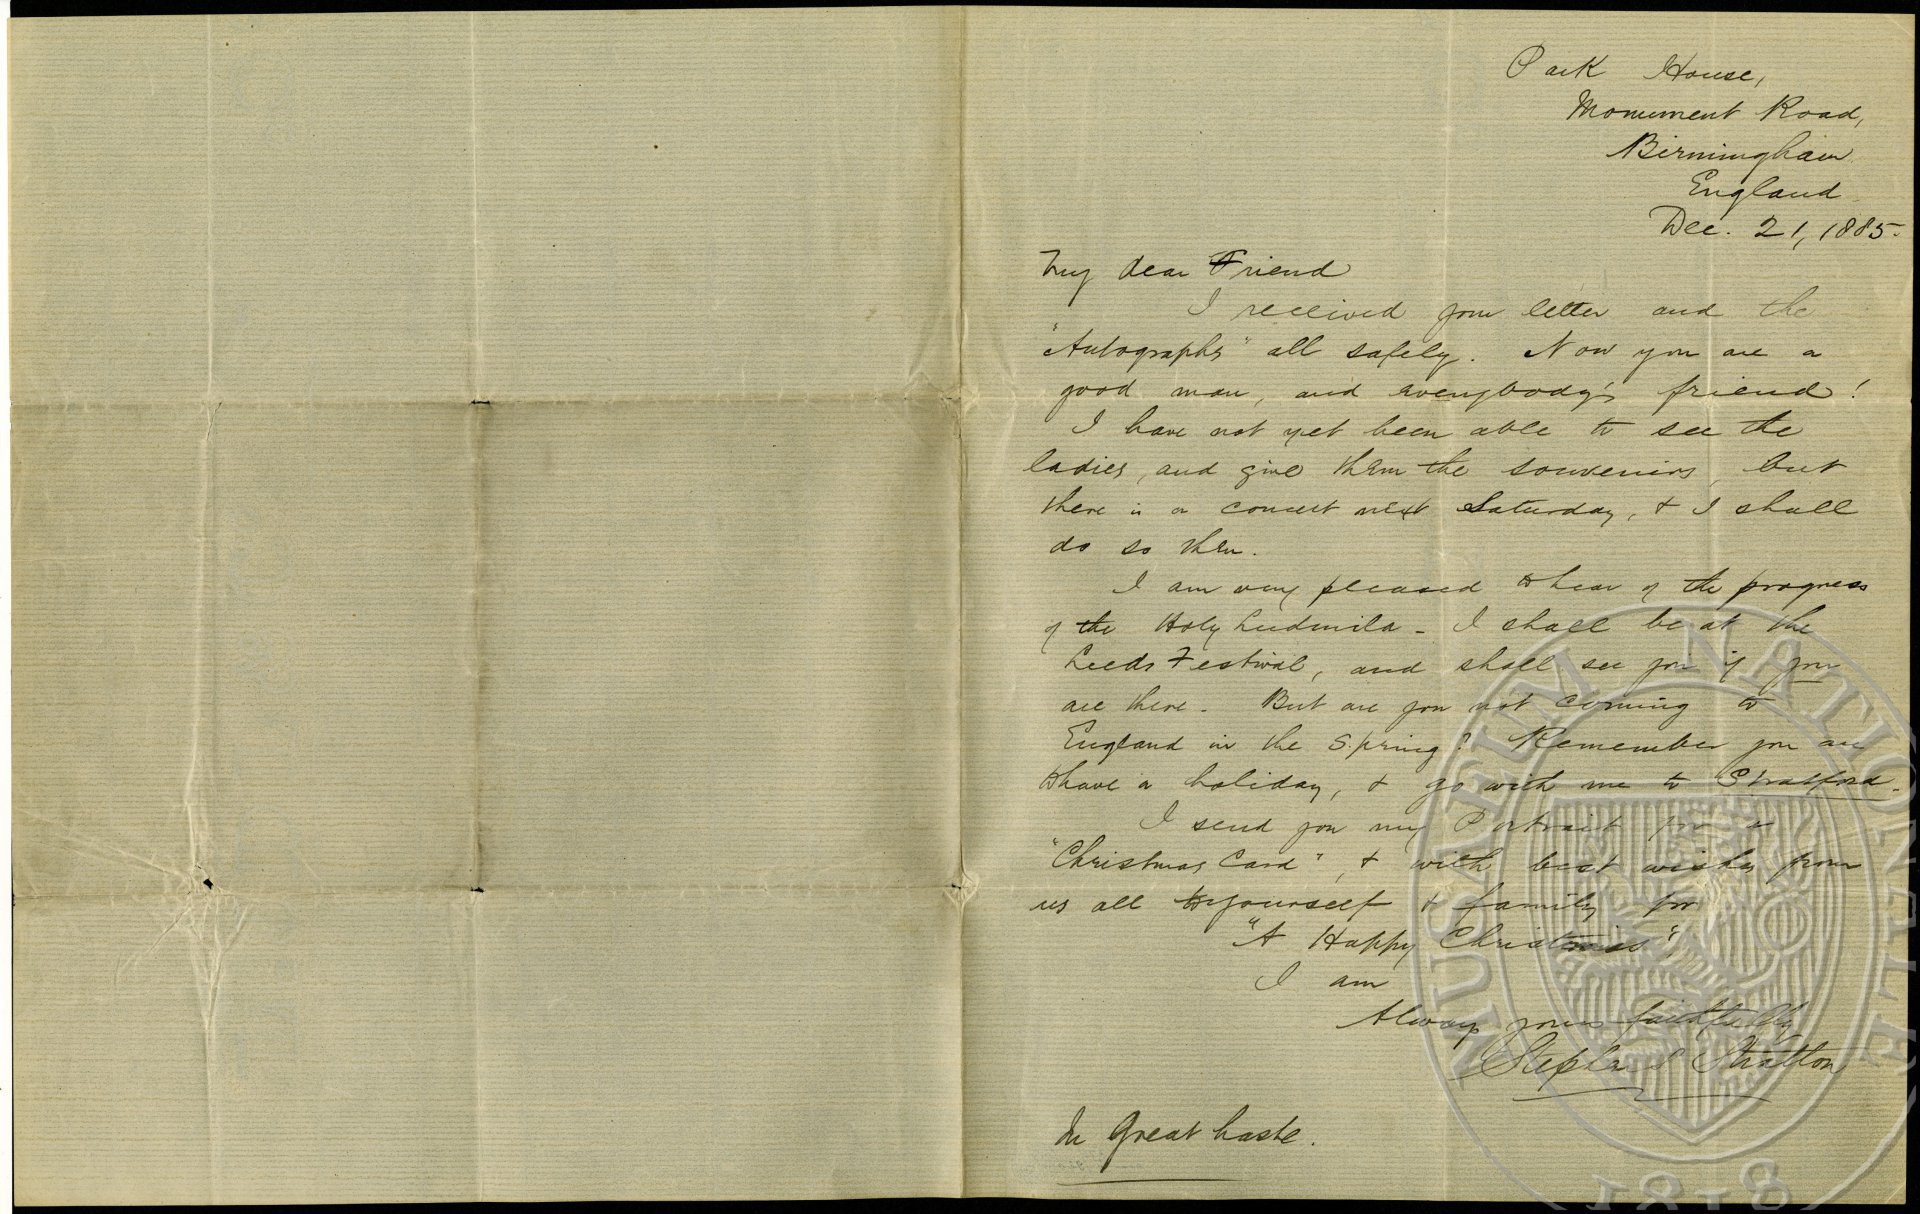 Park House,
Monument Road,
Birmingham
England
Dec. 21, 1885.
My dear Friend
I received your letter and the
"Autographs" all safely. Now you are a
good man, and everybody's friend!
I have not yet been able to see the
ladies, and give them the souvenirs, but
there is a concert next Saturday, & I shall
do so then.
I am very pleased to hear of the progress
of the Holy Ludmila - I shall be at the
Leeds Festival, and shall see you if you
are there. But are you not coming to
England in the Spring? Remember you are
to have a holiday, & go with me to Stratford.
I send you my Portrait for a
"Christmas Card", & with best wishes from
us all to yourself & family for
"A Happy Christmas"
I am
Always yours faithfully
Stephen S Stratton
In Great haste.
MUSAEUM NATIONALE
1818